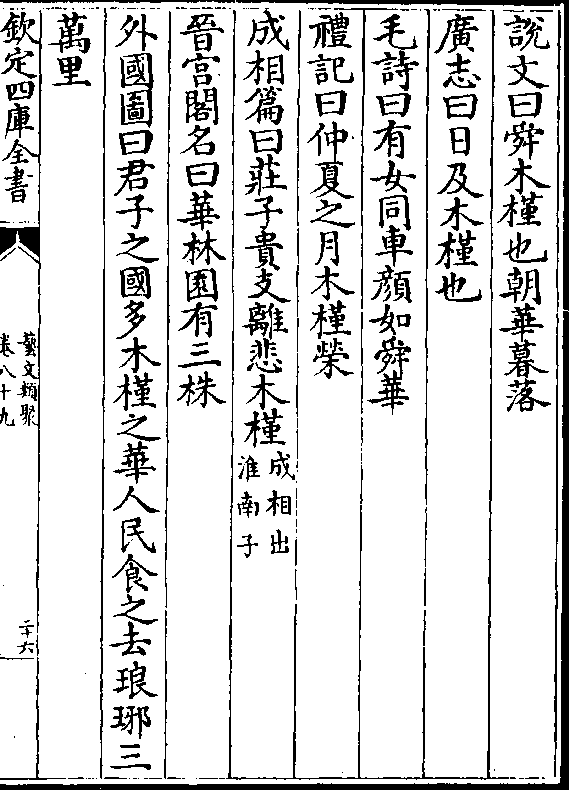 說文曰舜木槿也朝華暮落
廣志曰日及木槿也
毛詩曰有女同車顔如舜華
禮記曰仲夏之月木槿榮
成相篇曰莊子貴支離悲木槿成相出淮南子
晉宮閣名曰華林園有三株
外國圖曰君子之國多木槿之華人民食之去琅琊三
萬里
欽定四庫全書
藝文類聚
卷八十九
二十六